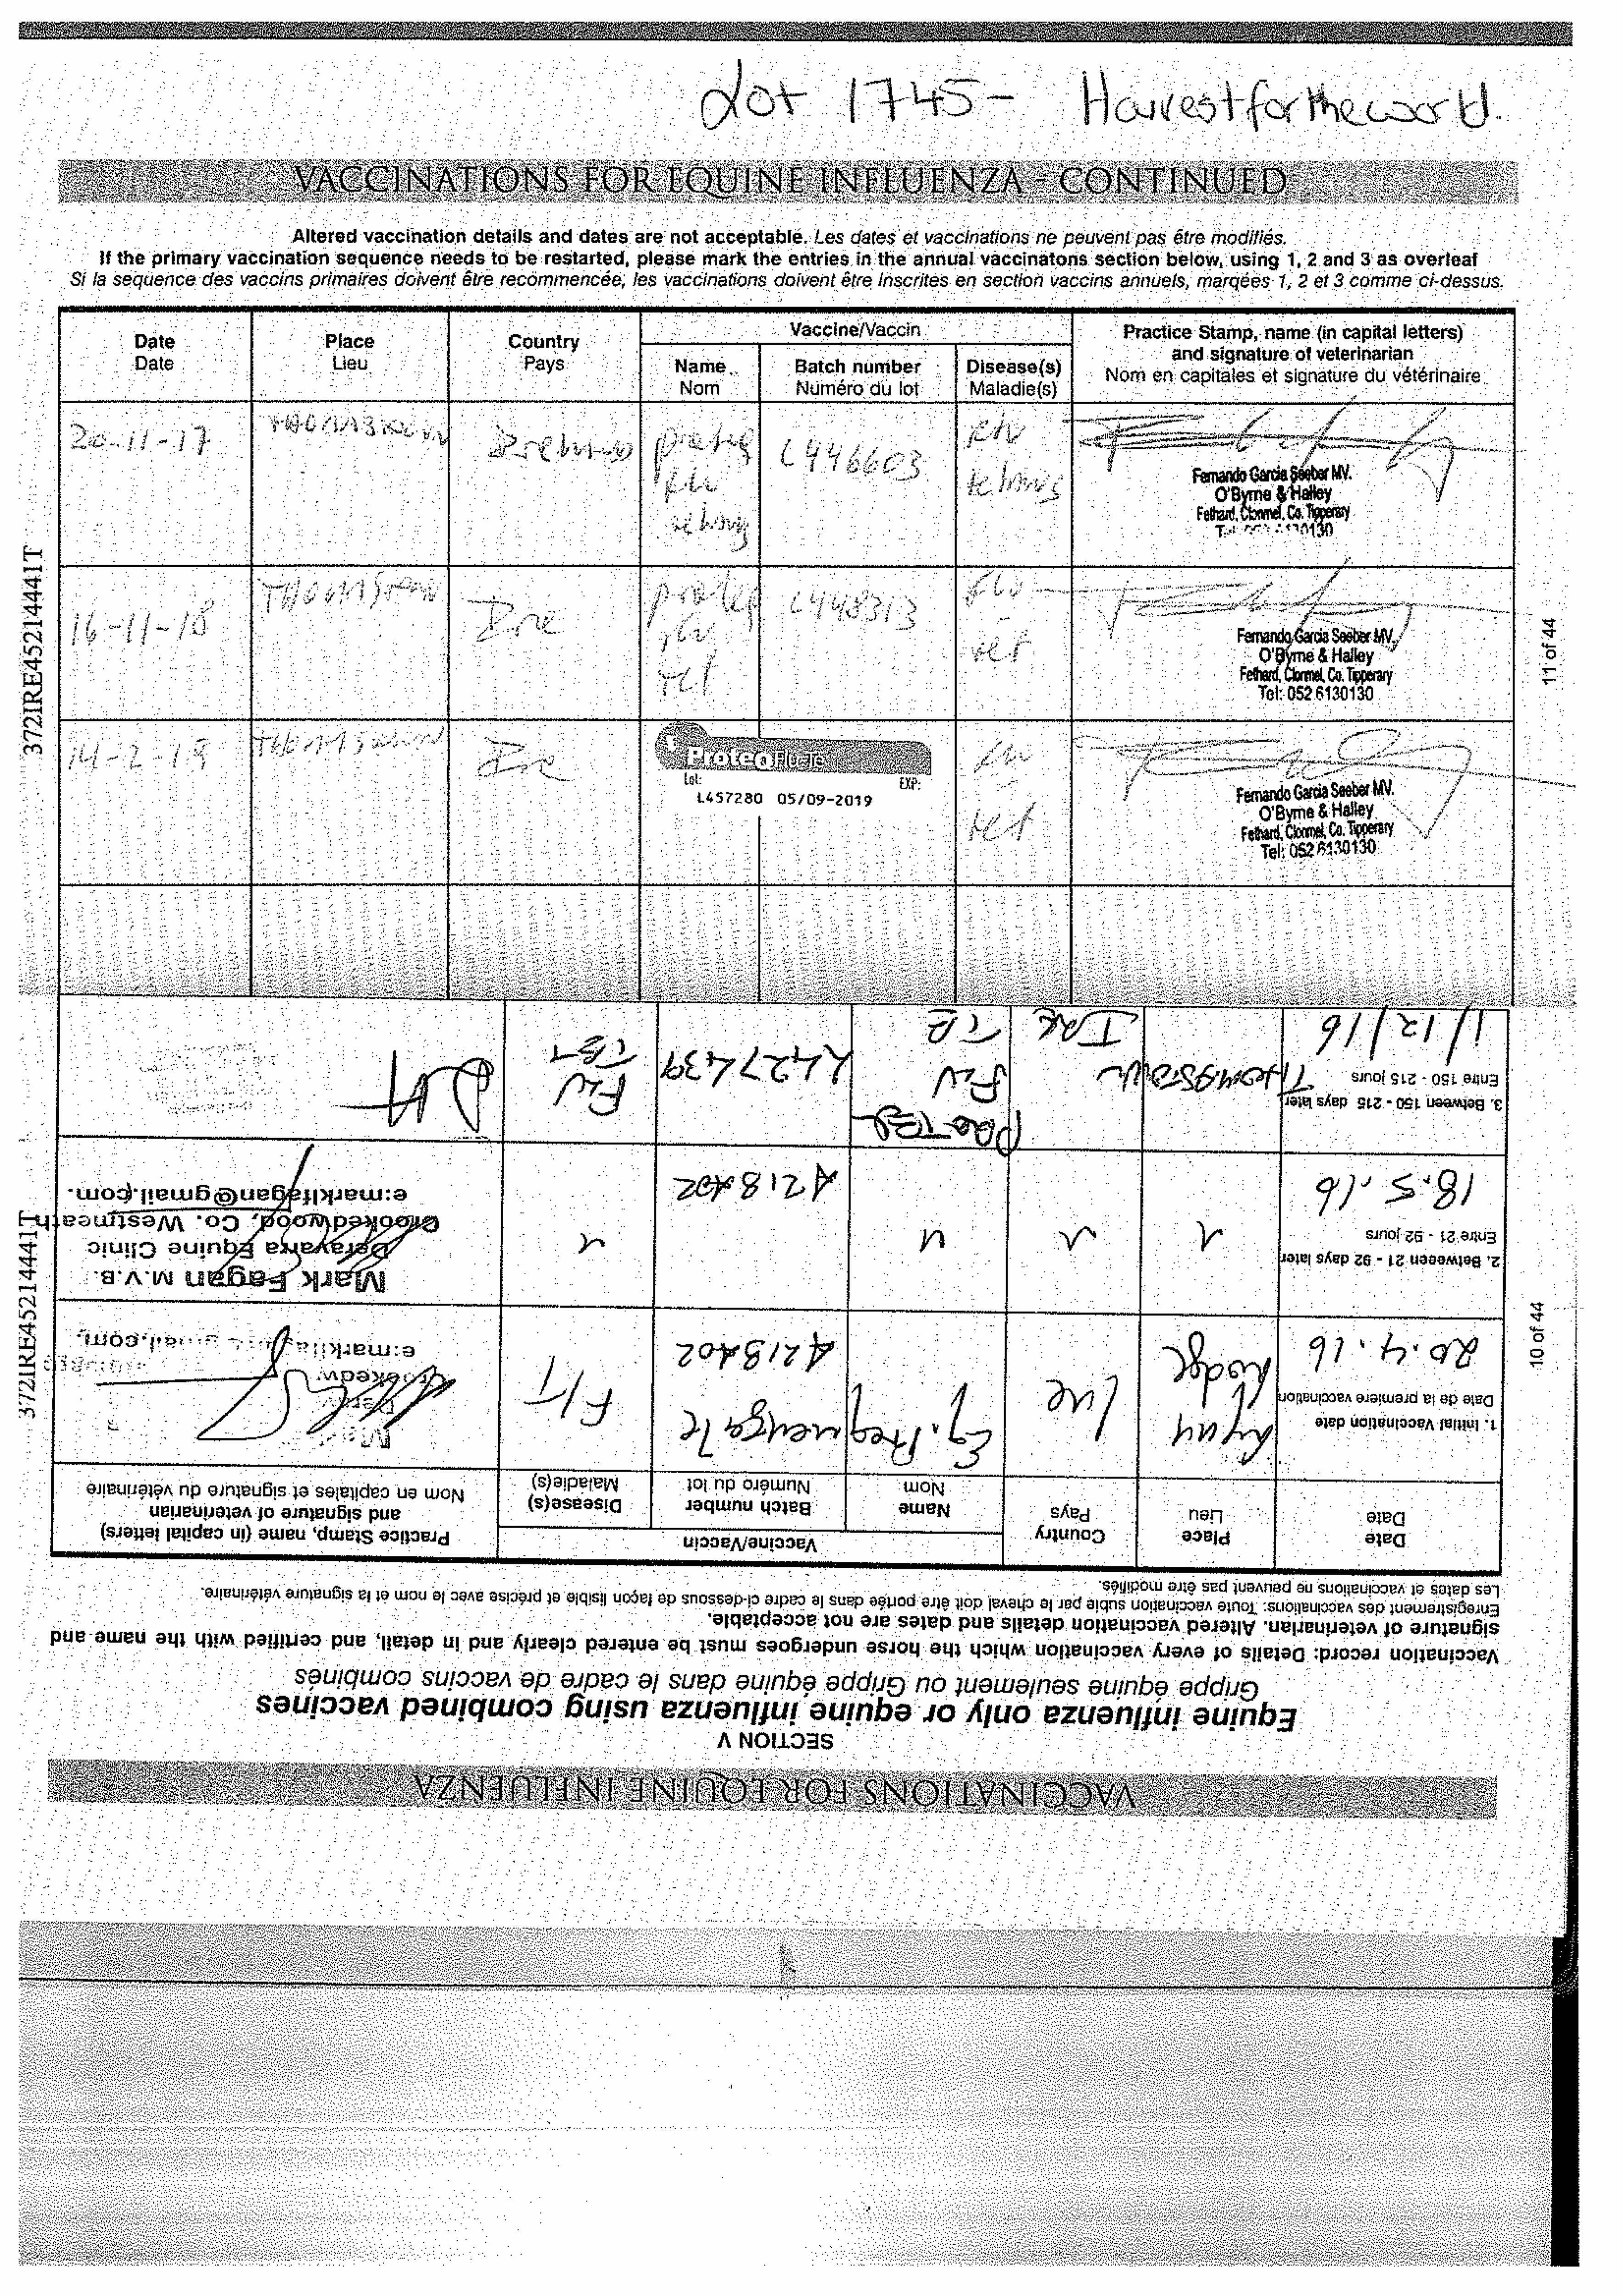 Lot 1745 - Harvestfortheworld.
VACCINATIONS FOR EQUINE INFLUENZA - CONTINUED
Altered vaccination details and dates are not acceptable. Les dates et vaccinations ne peuvent pas être modifiés.
If the primary vaccination sequence needs to be restarted, please mark the entries in the annual vaccinatons section below, using 1, 2 and 3 as overleaf
Si la sequence des vaccins primaires doivent être recommencée, les vaccinations doivent être inscrites en section vaccins annuels, marqées 1, 2 et 3 comme ci-dessus.
Date Place Country Vaccine/Vaccin Practice Stamp, name (in capital letters)
Date Lieu Pays and signature of veterinarian
Name Batch number Disease(s) Nom en capitales et signature du vétérinaire
Nom Numéro du lot Maladie(s)
20-11-17 THOMASTOWN L446603
Fernando Garcia Seeber MV.
O'Byrne & Halley
Fethard, Clonmel, Co. Tipperary
16-11-18 THOMASTOWN Ire L448313
Fernando Garcia Seeber MV.
O'Byrne & Halley
Fethard, Clonmel, Co. Tipperary
Tel: 052 6130130
14-2-19 THOMASTOWN Ire ProteqFlu-Te
Lot: EXP:
L457280 05/09-2019
Fernando Garcia Seeber MV.
O'Byrne & Halley
Fethard, Clonmel, Co. Tipperary
Tel: 052 6130130
372IRE45214441T
11 of 44
VACCINATIONS FOR EQUINE INFLUENZA
SECTION V
Equine influenza only or equine influenza using combined vaccines
Grippe équine seulement ou Grippe équine dans le cadre de vaccins combinés
Vaccination record: Details of every vaccination which the horse undergoes must be entered clearly and in detail, and certified with the name and
signature of veterinarian. Altered vaccination details and dates are not acceptable.
Enregistrement des vaccinations: Toute vaccination subie par le cheval doit être portée dans le cadre ci-dessous de façon lisible et précise avec le nom et la signature vétérinaire.
Les dates et vaccinations ne peuvent pas être modifiés.
Date Place Country Vaccine/Vaccin Practice Stamp, name (in capital letters)
Date Lieu Pays and signature of veterinarian
Name Batch number Disease(s) Nom en capitales et signature du vétérinaire
Nom Numéro du lot Maladie(s)
1. Initial Vaccination date
Date de la première vaccination
20.4.16 Lodge Ire A218A02 F/T
2. Between 21 - 92 days later
Entre 21 - 92 jours
18.5.16 A218A02
Mark Fagan M.V.B.
Derayarra Equine Clinic
Crookedwood, Co. Westmeath
e:marklfagan@gmail.com.
3. Between 150 - 215 days later
Entre 150 - 215 jours
1/12/16 THOMASTOWN IRE FLU TE L427439 FLU
372IRE45214441T
10 of 44